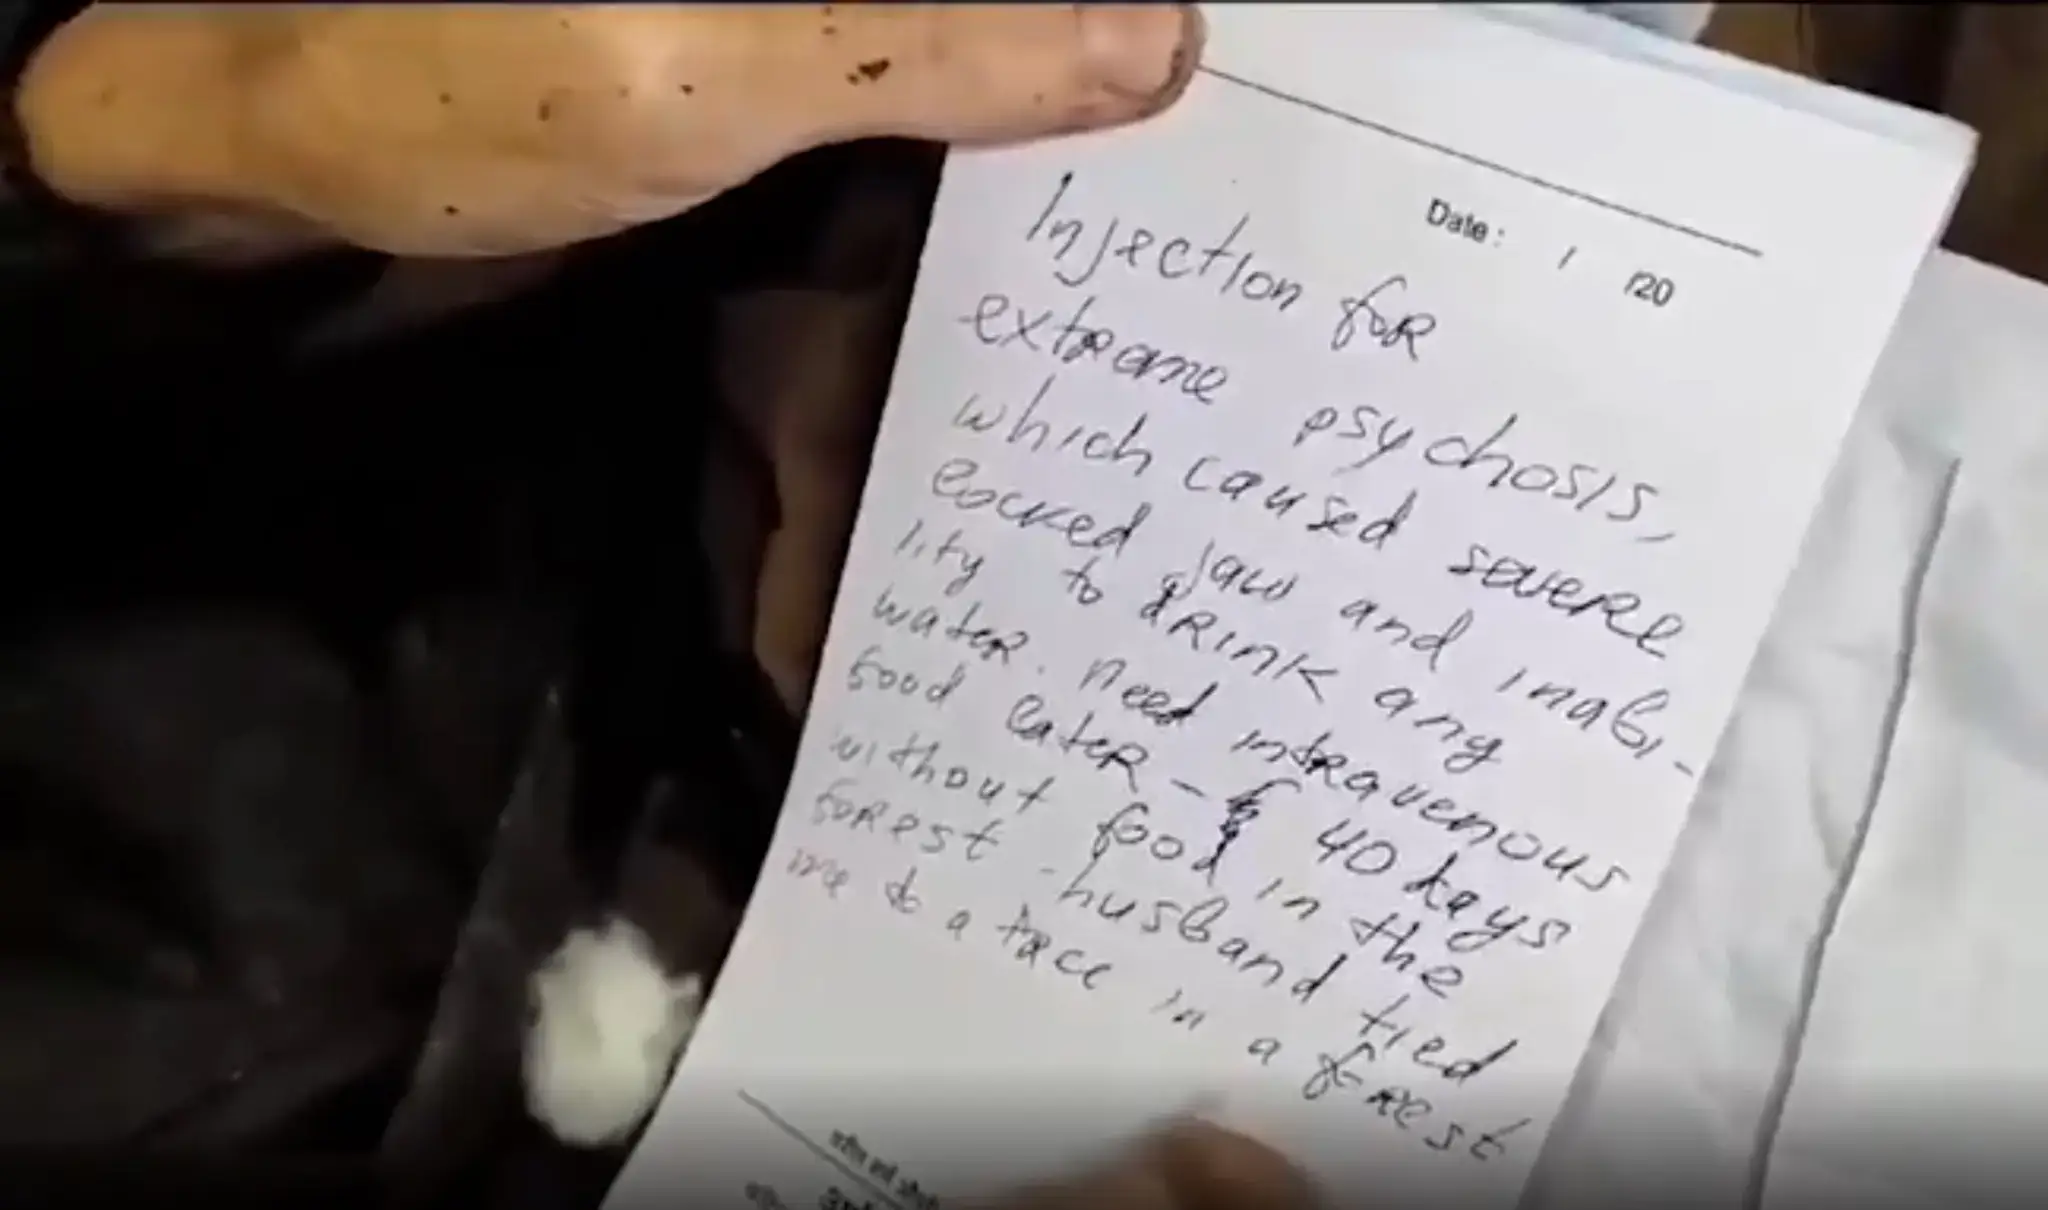 Date: / /20
Injection for
extrame psychosis,
which caused severe
locked jaw and inabi-
lity to drink any
water. need intravenous
food later - 40 days
without food in the
forest - husband tied
me to a trace in a forest